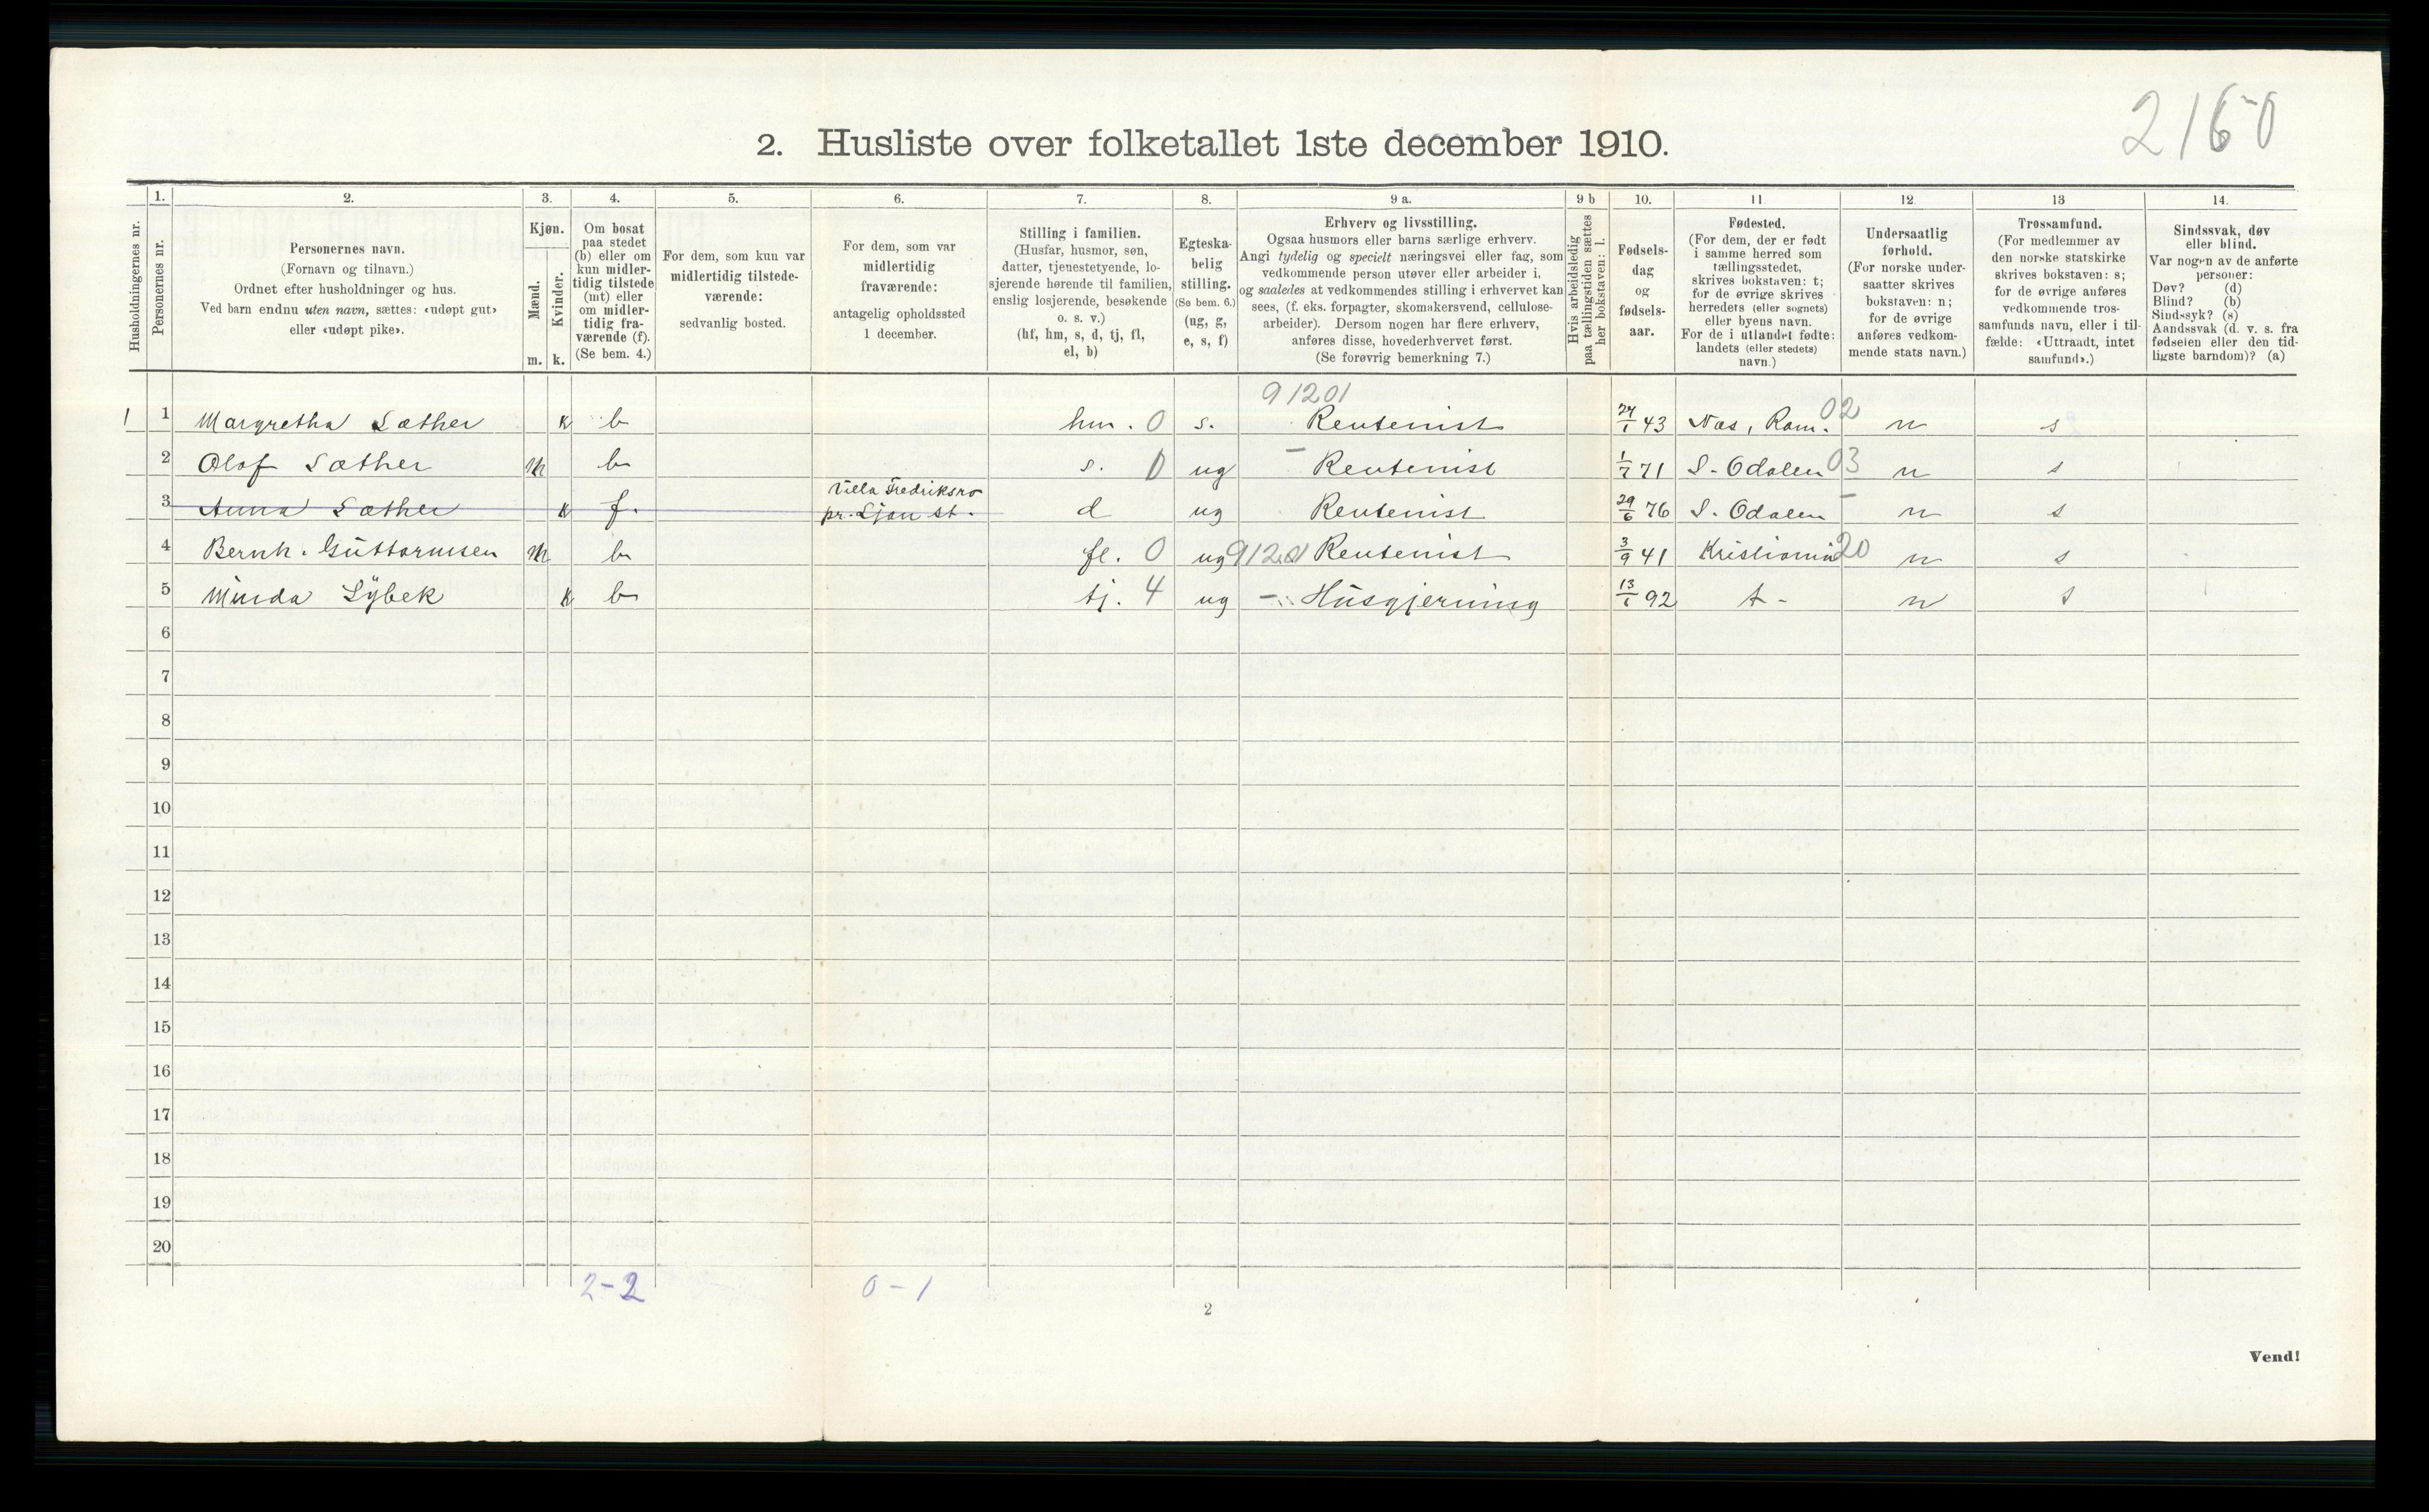 2160
2. Husliste over folketallet 1ste december 1910.
Husholdningernes nr.
1.
Personernes nr.
2.
Personernes navn.
(Fornavn og tilnavn.)
Ordnet efter husholdninger og hus.
Ved barn endnu uten navn, sættes: «udøpt gut»
eller «udøpt pike».
3.
Kjøn.
Mænd.
Kvinder.
m. k.
4.
Om bosat
paa stedet
(b) eller om
kun midler-
tidig tilstede
(mt) eller
om midler-
tidig fra-
værende (f).
(Se bem. 4.)
5.
For dem, som kun var
midlertidig tilstede-
værende:
sedvanlig bosted.
6.
For dem, som var
midlertidig
fraværende:
antagelig opholdssted
1 december.
7.
Stilling i familien.
(Husfar, husmor, søn,
datter, tjenestetyende, lo-
sjerende hørende til familien,
enslig losjerende, besøkende
o. s. v.)
(hf, hm, s, d, tj, fl,
el, b)
8.
Egteska-
belig
stilling.
(Se bem. 6.)
(ug, g,
e, s, f)
9 a.
Erhverv og livsstilling.
Ogsaa husmors eller barns særlige erhverv.
Angi tydelig og specielt næringsvei eller fag, som
vedkommende person utøver eller arbeider i,
og saaledes at vedkommendes stilling i erhvervet kan
sees, (f. eks. forpagter, skomakersvend, cellulose-
arbeider). Dersom nogen har flere erhverv,
anføres disse, hovederhvervet først.
(Se forøvrig bemerkning 7.)
9 b
Hvis arbeidsledig
paa tællingstiden sættes
her bokstaven: l.
10.
Fødsels-
dag
og
fødsels-
aar.
11.
Fødested.
(For dem, der er født
i samme herred som
tællingsstedet,
skrives bokstaven: t;
for de øvrige skrives
herredets (eller sognets)
eller byens navn.
For de i utlandet fødte:
landets (eller stedets)
navn.)
12.
Undersaatlig
forhold.
(For norske under-
saatter skrives
bokstaven: n;
for de øvrige
anføres vedkom-
mende stats navn.)
13
Trossamfund.
(For medlemmer av
den norske statskirke
skrives bokstaven: s;
for de øvrige anføres
vedkommende tros-
samfunds navn, eller i til-
fælde: «Uttraadt, intet
samfund».)
14.
Sindssvak, døv
eller blind.
Var nogen av de anførte
personer:
Døv? (d)
Blind? (b)
Sindssyk? (s)
Aandssvak (d. v. s. fra
fødselen eller den tid-
ligste barndom)? (a)
91201
1 1 Margretha Sæther k b hm. 0 s. Rentenist 27/1 43 Næs, Rom. 02 n s
2 Olof Sæther m b s. 0 ug – Rentenist 1/7 71 S. Odalen 03 n s
Villa Fredriksro
3 Anna Sæther k f. pr. Ljan st. d ug Rentenist 29/6 76 S. Odalen – n s
4 Bernh. Guttormsen m b fl. 0 ug 91201 Rentenist 3/9 41 Kristiania 20 n s
5 Minda Lybek k b tj. 4 ug – Husgjerning 13/1 92 t - n s
6
7
8
9
10
11
12
13
14
15
16
17
18
19
20
2-2 0-1
2
Vend!